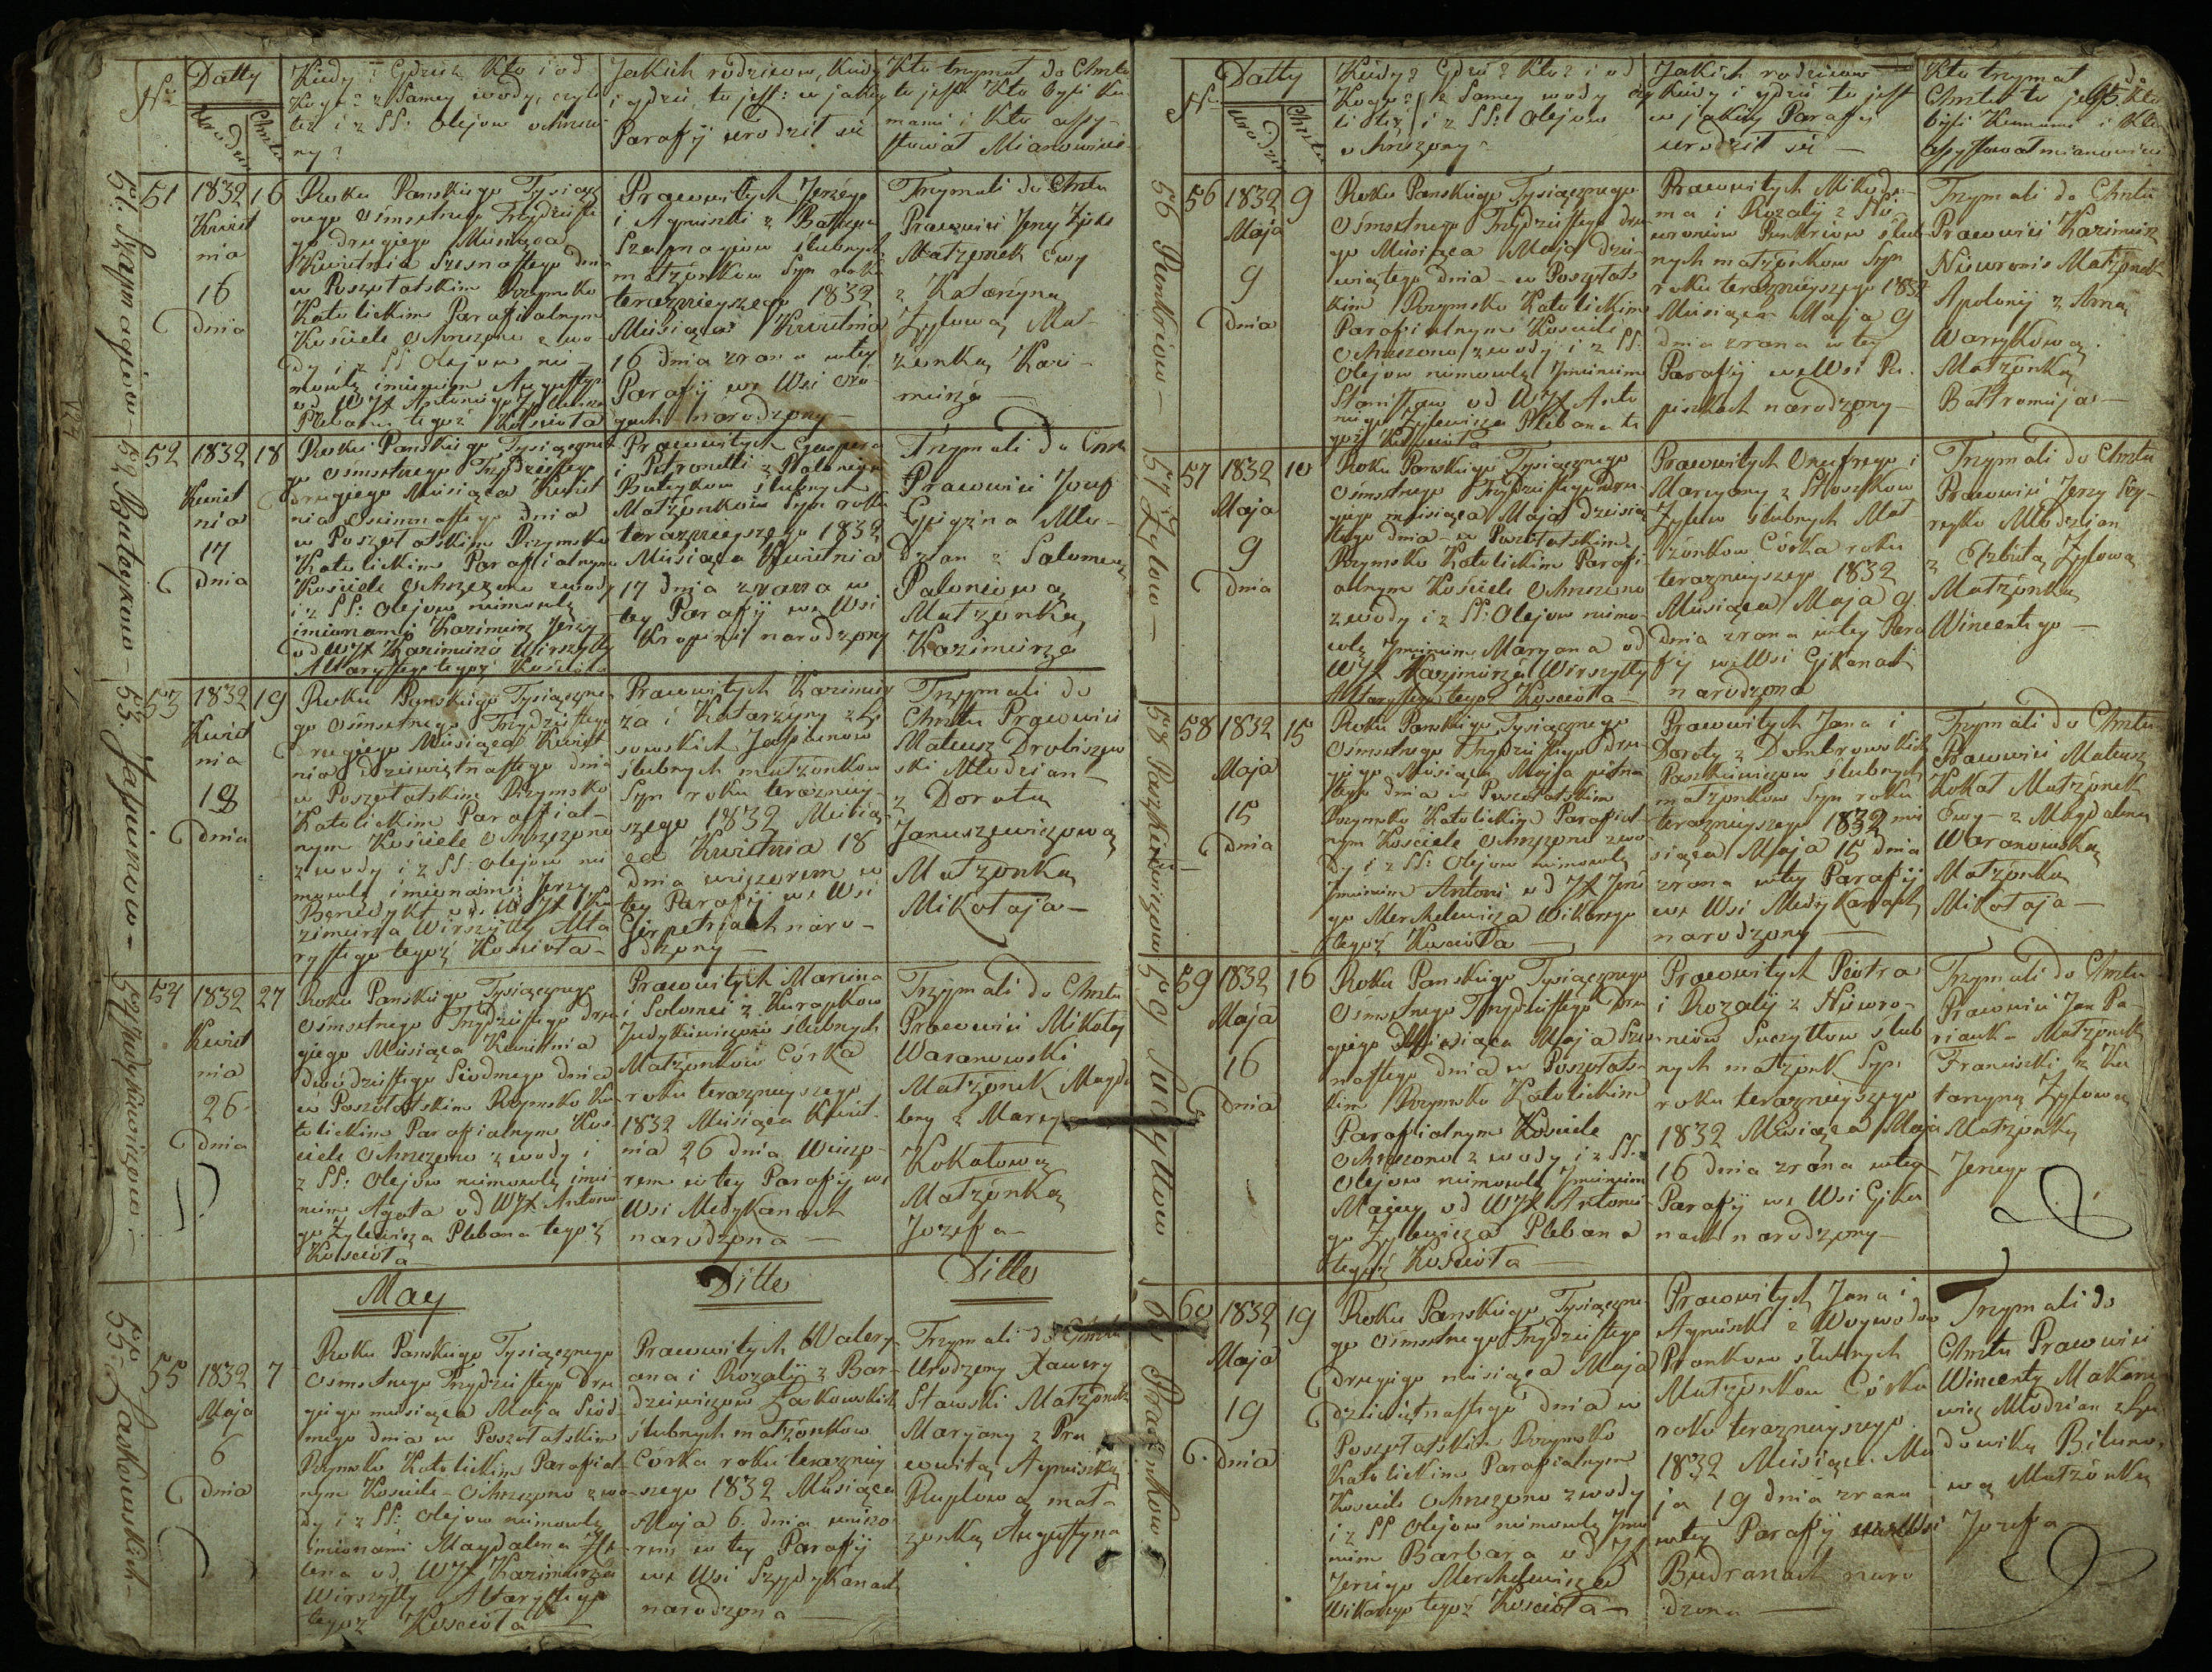 Nr
Datty
Urodzin
Chrztu
Kiedy? Gdzie? Kto i od
Kogo? z Samey wody, czyli
też i z SS: Olejow ochrzczo-
ny?
Jakich rodzicow, kiedy
i gdzie, to jest: w jakiey
Parafij urodził się
Kto trzymał do Chrztu
to jest Kto byli Ku-
mami i Kto assy-
stował Mianowicie
51. Szapnagiow
51
1832
Kwiet
nia
16
dnia
16
Roku Panskiego Tysiącz
nego Osmsetnego Trzydzieste
go drugiego Miesiąca
Kwietnia Szesnastego dnia
w Poszołatskim Rzymsko
Katolickim Parafialnym
Kościele Ochrzczono z wo
dy i z SS Olejow nie-
mowlę imieniem Augustyn
od WJX Antoniego Żylewicza
Plebana tegoż Kościoła
Prawowitych Jerzego
i Agnieszki z
slubnych
małżonkow Syn roku
teraznieyszego 1832
Miesiąca Kwietnia
16 dnia zrana w tey
Parafij we Wsi
narodzony
Trzymali do Chrztu
Prawowici Jerzy Żyło
Małżonek Ewy
z Katarzyną
Żyłową Mał-
żonką Kazi-
mierza
52 Buteykow
52
1832
Kwiet
nia
17
dnia
18
Roku Panskiego Tysiączne
go Osmsetnego Trzydziestego
drugiego Miesiąca Kwiet
nia Osiemnastego dnia
w Poszołatskim Rzymsko
Katolickim Parafialnym
Kościele Ochrzczono z wody
i z SS: Olejow niemowlę
imionami Kazimierz Jerzy
od WJX Kazimierza Wirszyłły
Altarystego tegoż Kościoła
Prawowitych Gaspera
i Petronelli z
Buteykow slubnych
Małżonkow Syn roku
teraznieyszego 1832
Miesiąca Kwietnia
17 dnia zrana w
tey Parafij we Wsi
narodzony
Trzymali do Chrztu
Prawowici Jozef
Mło-
dzian z Salomeą
Paloniową
Małżonką
Kazimierza
53. Jasiunow
53
1832
Kwiet
nia
18
dnia
19
Roku Panskiego Tysiączne
go Osmsetnego Trzydziestego
drugiego Miesiąca Kwiet
nia dziewiętnastego dnia
w Poszołatskim Rzymsko
Katolickim Parafial-
nym Kościele Ochrzczono
z wody i z SS Olejow nie
mowlę imionami Jerzy
Benedykt od WJX Ka
zimierza Wirszyłły Alta
rystego tegoż Kościoła
Prawowitych Kazimier
za i Katarzyny z
Jasiunow
slubnych małżonkow
Syn roku terazniey-
szego 1832 Miesią
ca Kwietnia 18
dnia wieczorem w
tey Parafij we Wsi
naro-
dzony
Trzymali do
Chrztu Prawowici
Mateusz Drobiszew
ski Młodzian
z Dorotą
Januszewiczową
Małżonką
Mikołaja
54 Judykiewiczow
54
1832
Kwiet
nia
26
dnia
27
Roku Panskiego Tysiącznego
Osmsetnego Trzydziestego dru
giego Miesiąca Kwietnia
dwódziestego Siodmego dnia
w Poszołatskim Rzymsko Ka
tolickim Parafialnym Koś
ciele Ochrzczono z wody i
z SS: Olejow niemowlę imie
niem Agata od WJX Antonie
go Żylewicza Plebana tegoż
Kościoła
Prawowitych Marcina
i Solomei z Kurapkow
Judykiewiczow slubnych
Małżonkow Córka
roku teraznieyszego
1832 Miesiąca Kwiet-
nia 26 dnia Wieczo-
rem w tey Parafij we
Wsi Medykanach
narodzona
Trzymali do Chrztu
Prawowici Mikołay
Waranowski
Małżonek Magda
leny z
Kokatową
Małżonką
Jozefa
May
Ditto
Ditto
55 Laskowskich
55
1832
Maja
6
dnia
7
Roku Panskiego Tysiącznego
Osmsetnego Trzydziestego Dru
giego miesiąca Maja Siód-
mego dnia w Poszołatskim
Rzymsko Katolickim Parafial
nym Kościele Ochrzczono z wo
dy i z SS: Olejow niemowlę
imionami Magdalena He
lena od WJX Kazimierza
Wirszyłły Altarystego
tegoż Kościoła
Prawowitych Walery-
ana i Rozalij z Bar-
dziewiczow Laskowskich
slubnych małżonkow
Córka roku teraznieys
szego 1832 Miesiąca
Maja 6. dnia wieczo-
rem w tey Parafij
we Wsi Szydykanach
narodzona
Trzymali do Chrztu
Urodzony Xawery
Sławski Małżonek
Maryany z Pra
wowitą Agnieszką
Ruplową mał-
żonką Augustyna
Nr
Datty
Urodzin
Chrztu
Kiedy? Gdzie? Kto? i od
Kogo? z Samey wody czy
li też i z SS: Olejow
ochrzczony
Jakich rodzicow
kiedy i gdzie to jest
w jakiey Parafij
urodził się
Kto trzymał do
Chrztu to jest: Kto
byli Kumami i Kto
assystował mianowicie
95
56 Punkriow
56
1832
Maja
9
dnia
9
Roku Panskiego Tysiącznego
Osmsetnego Trzydziestego dru
go Miesiąca Maja dzie-
wiątego dnia w Poszołats
kim Rzymsko Katolickim
Parafialnym Kościele
Ochrzczono z wody i z SS:
Olejow niemowlę Imieniem
Stanisław od WJX Anto
niego Żylewicza Plebana te
goż Kościoła
Prawowitych Nikode-
ma i Rozalij z Nie
wroniow Punkriow slub
nych małżonkow Syn
roku teraznieyszego 1832
Miesiąca Maja 9
dnia zrana w tey
Parafij we Wsi Pu-
piszkach narodzony
Trzymali do Chrztu
Prawowici Kazimierz
Niewronis Małżonek
Apolonij z Anną
Warnykową
Małżonką
Bałtromieja
57 Żyłow
57
1832
Maja
9
dnia
10
Roku Panskiego Tysiącznego
Osmsetnego Trzydziestego Dru-
giego miesiąca Maja dziesią
tego dnia w Poszołatskim
Rzymsko Katolickim Parafi
alnym Kościele Ochrzczono
z wody i z SS: Olejow niemo-
wlę Imieniem Maryana od
WJX Kazimierza Wirszyłły
Altarystego tegoż Kościoła
Prawowitych Onufrego i
Maryany z
Żyłow slubnych Mał
żonkow Córka roku
teraznieyszego 1832
Miesiąca Maja 9
dnia zrana w tey Para
fij we Wsi Gikanach
narodzona
Trzymali do Chrztu
Prawowici Jerzy
Młodzian
z Elżbietą Żyłową
Małżonką
Wincentego
58 Paszkiewiczow
58
1832
Maja
15
dnia
15
Roku Panskiego Tysiącznego
Osmsetnego Trzydziestego Dru
giego Miesiąca Maja piętna
stego dnia w Poszołatskim
Rzymsko Katolickim Parafial
nym Kościele Ochrzczono z wo
dy i z SS: Olejow niemowlę
Imieniem Antoni od JX Jerze
go Merchelewicza Wikarego
tegoż Kościoła
Prawowitych Jana i
Doroty z Dombrowskich
Paszkiewiczow slubnych
małżonkow Syn roku
teraznieyszego 1832 mie
siąca Maja 15 dnia
zrana w tey Parafij
we Wsi Medykanach
narodzony
Trzymali do Chrztu
Prawowici Mateusz
Kokat Małżonek
Ewy z Magdaleną
Waranowską
Małżonką
Mikołaja
59 Suczyłłow
59
1832
Maja
16
dnia
16
Roku Panskiego Tysiącznego
Osmsetnego Trzydziestego Dru
giego Miesiąca Maja Szes-
nastego dnia w Poszołats-
kim Rzymsko Katolickim
Parafialnym Kościele
Ochrzczono z wody i z SS.
Olejow niemowlę Imieniem
Maciey od WJX Antonie
go Żylewicza Plebana
tegoż Kościoła
Prawowitych Piotra
i Rozalij z Niewro-
niow Suczyłłow slub
nych małżonk Syn
roku teraznieyszego
1832 Miesiąca Maja
16 dnia zrana w tey
Parafij we Wsi Gika
nach narodzony
Trzymali do Chrztu
Prawowici Jan
Małżonek
Franciszki z Ka
tarzyną Żyłową
Małżonką
Jerzego
60 Prankow
60
1832
Maja
19
dnia
19
Roku Panskiego Tysiączne-
go Osmsetnego Trzydziestego
drugiego miesiąca Maja
dziewiętnastego dnia w
Poszołatskim Rzymsko
Katolickim Parafialnym
Kościele Ochrzczono z wody
i z SS Olejow niemowlę Imie
niem Barbara od JX
Jerzego Merchelewicza
Wikarego tegoż Kościoła
Prawowitych Jana i
Agnieszki z Woywodow
Prankow slubnych
Małżonkow Córka
roku teraznieyszego
1832 Miesiąca Ma
ja 19 dnia zrana
w tey Parafij we Wsi
Budranach naro
dzona
Trzymali do
Chrztu Prawowici
Wincenty Makare
wicz Młodzian z Lu
dowiką
Małżonką
Jozefa